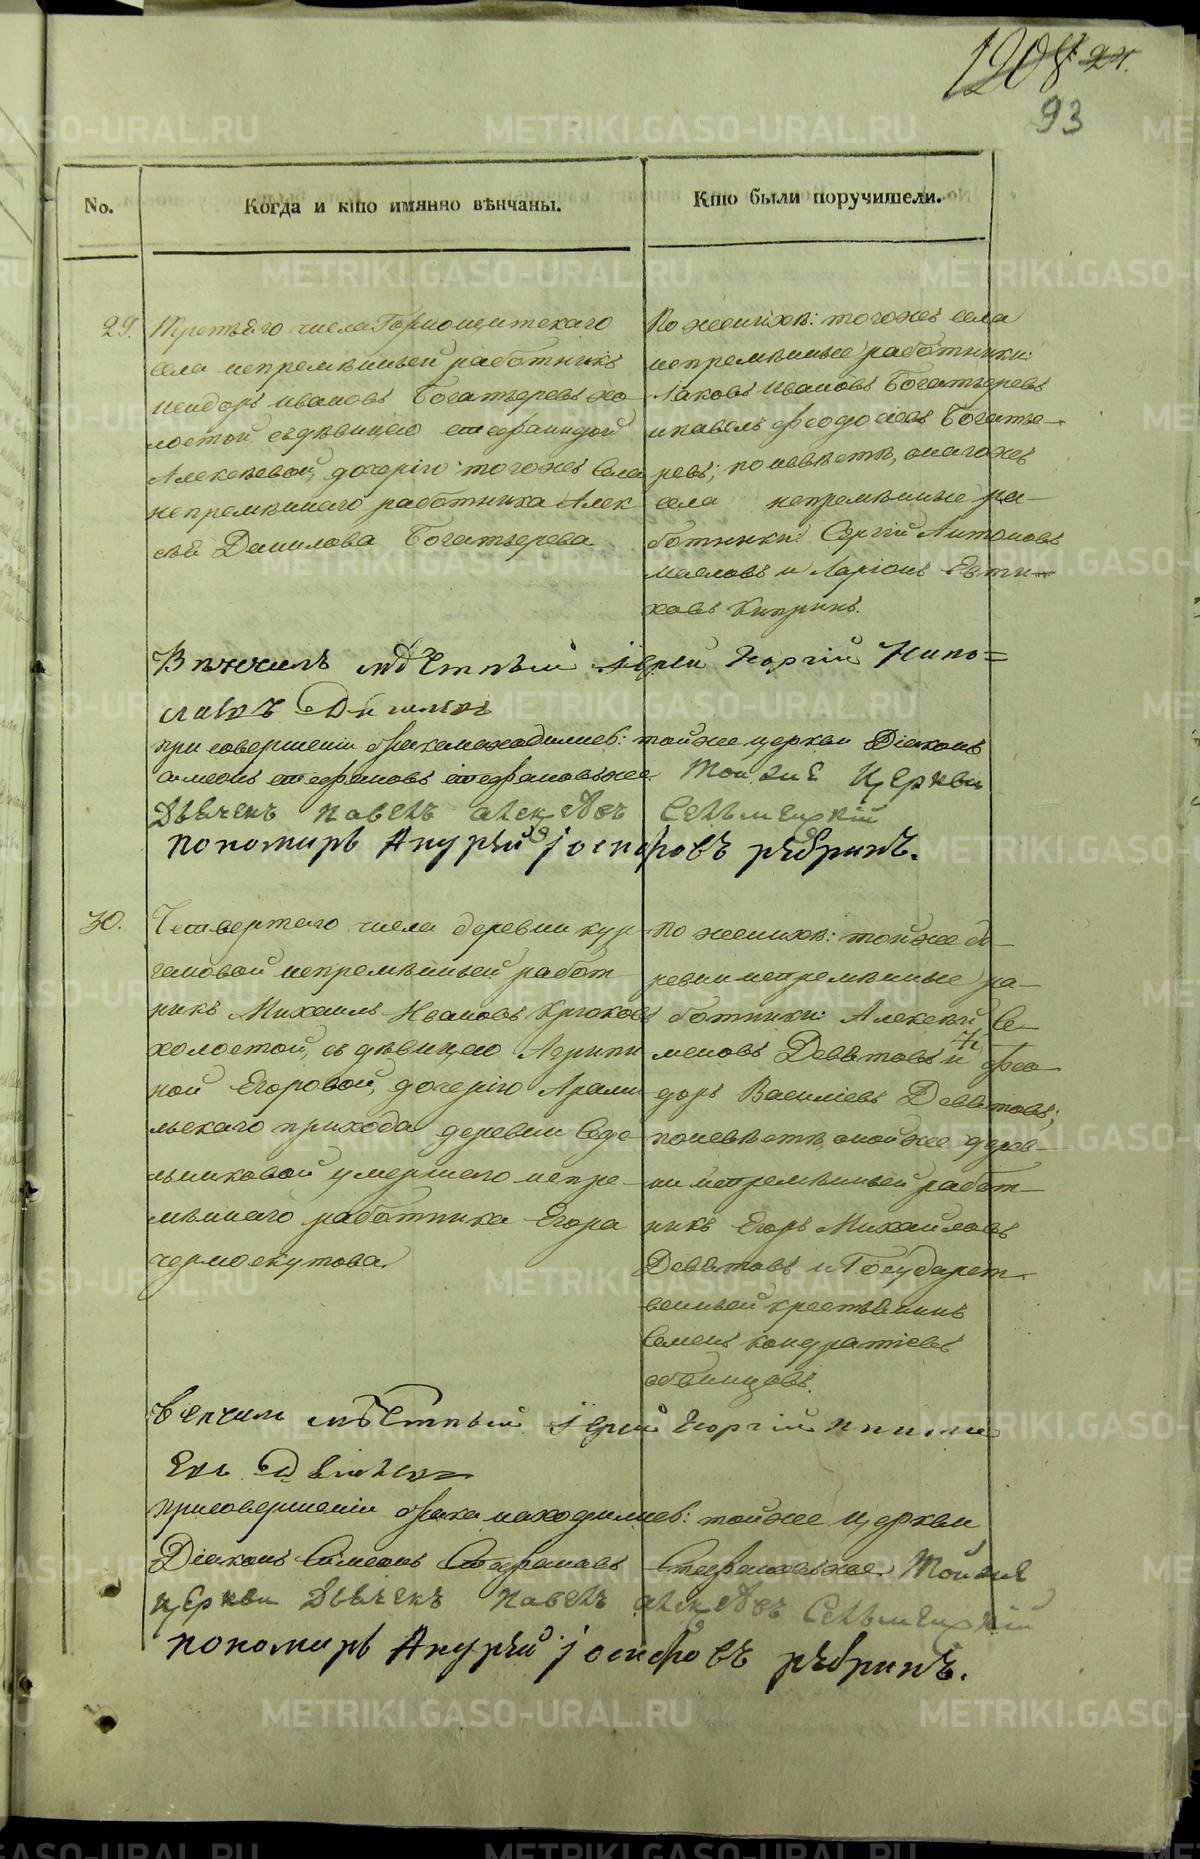 1208 24.
93
No.
Когда и кто имянно вѣнчаны.
Кто были поручители.
29.
Третьяго числа Горнощитскаго
села непремѣнный работникъ
Исидоръ Ивановъ Богатыревъ хо-
лостой, съ дѣвицею Стефанидой
Алексѣевой, дочерію тогожъ села
непремѣннаго работника Алек
сѣя Данилова Богатырева
По женихѣ: тогожъ села
непремѣнные работники:
Іаковъ Ивановъ Богатыревъ
и Павелъ Феодосіевъ Богаты-
ревъ; по невѣстѣ, онагожъ
села непремѣнные ра-
ботники: Сергій Антоновъ
Масловъ и Ларіонъ Евти-
ховъ Кипринъ.
Вѣнчалъ мѣстный іерей Георгій
при совершеніи брака находились: тойже церкви Діаконъ
Симеонъ Стефановъ Стефановъ же. Тойже Церкви
Дьячекъ Павелъ Алексѣевъ Селменскій
пономарь Андрей Іосифовъ Рябринъ.
30.
Четвертаго числа деревни Кур-
гановой непремѣнный работ
никъ Михаилъ Ивановъ Крюковъ
холостой, съ дѣвицею Агрипи
ной Егоровой, дочерію Арами
льскаго прихода деревни Седе
льниковой умершаго непре-
мѣннаго работника Егора
Чермоскутова.
По женихѣ: тойже де-
ревни непремѣнные ра-
ботники: Алексѣй Се-
меновъ Девятовъ и Фео-
доръ Василіевъ Девятовъ;
по невѣстѣ, онойже дерев-
ни непремѣнный работ-
никъ Егоръ Михайловъ
Девятовъ и Государст-
венный крестьянинъ
Семенъ Кондратіевъ
Вѣнчалъ мѣстный іерей Георгій
при совершеніи брака находились: тойже церкви
Діаконъ Симеонъ Стефановъ Стефановъ же. Тойже
церкви Дьячекъ Павелъ Алексѣевъ Селменскій
пономарь Андрей Іосифовъ Рябринъ.
METRIKI.GASO-URAL.RU